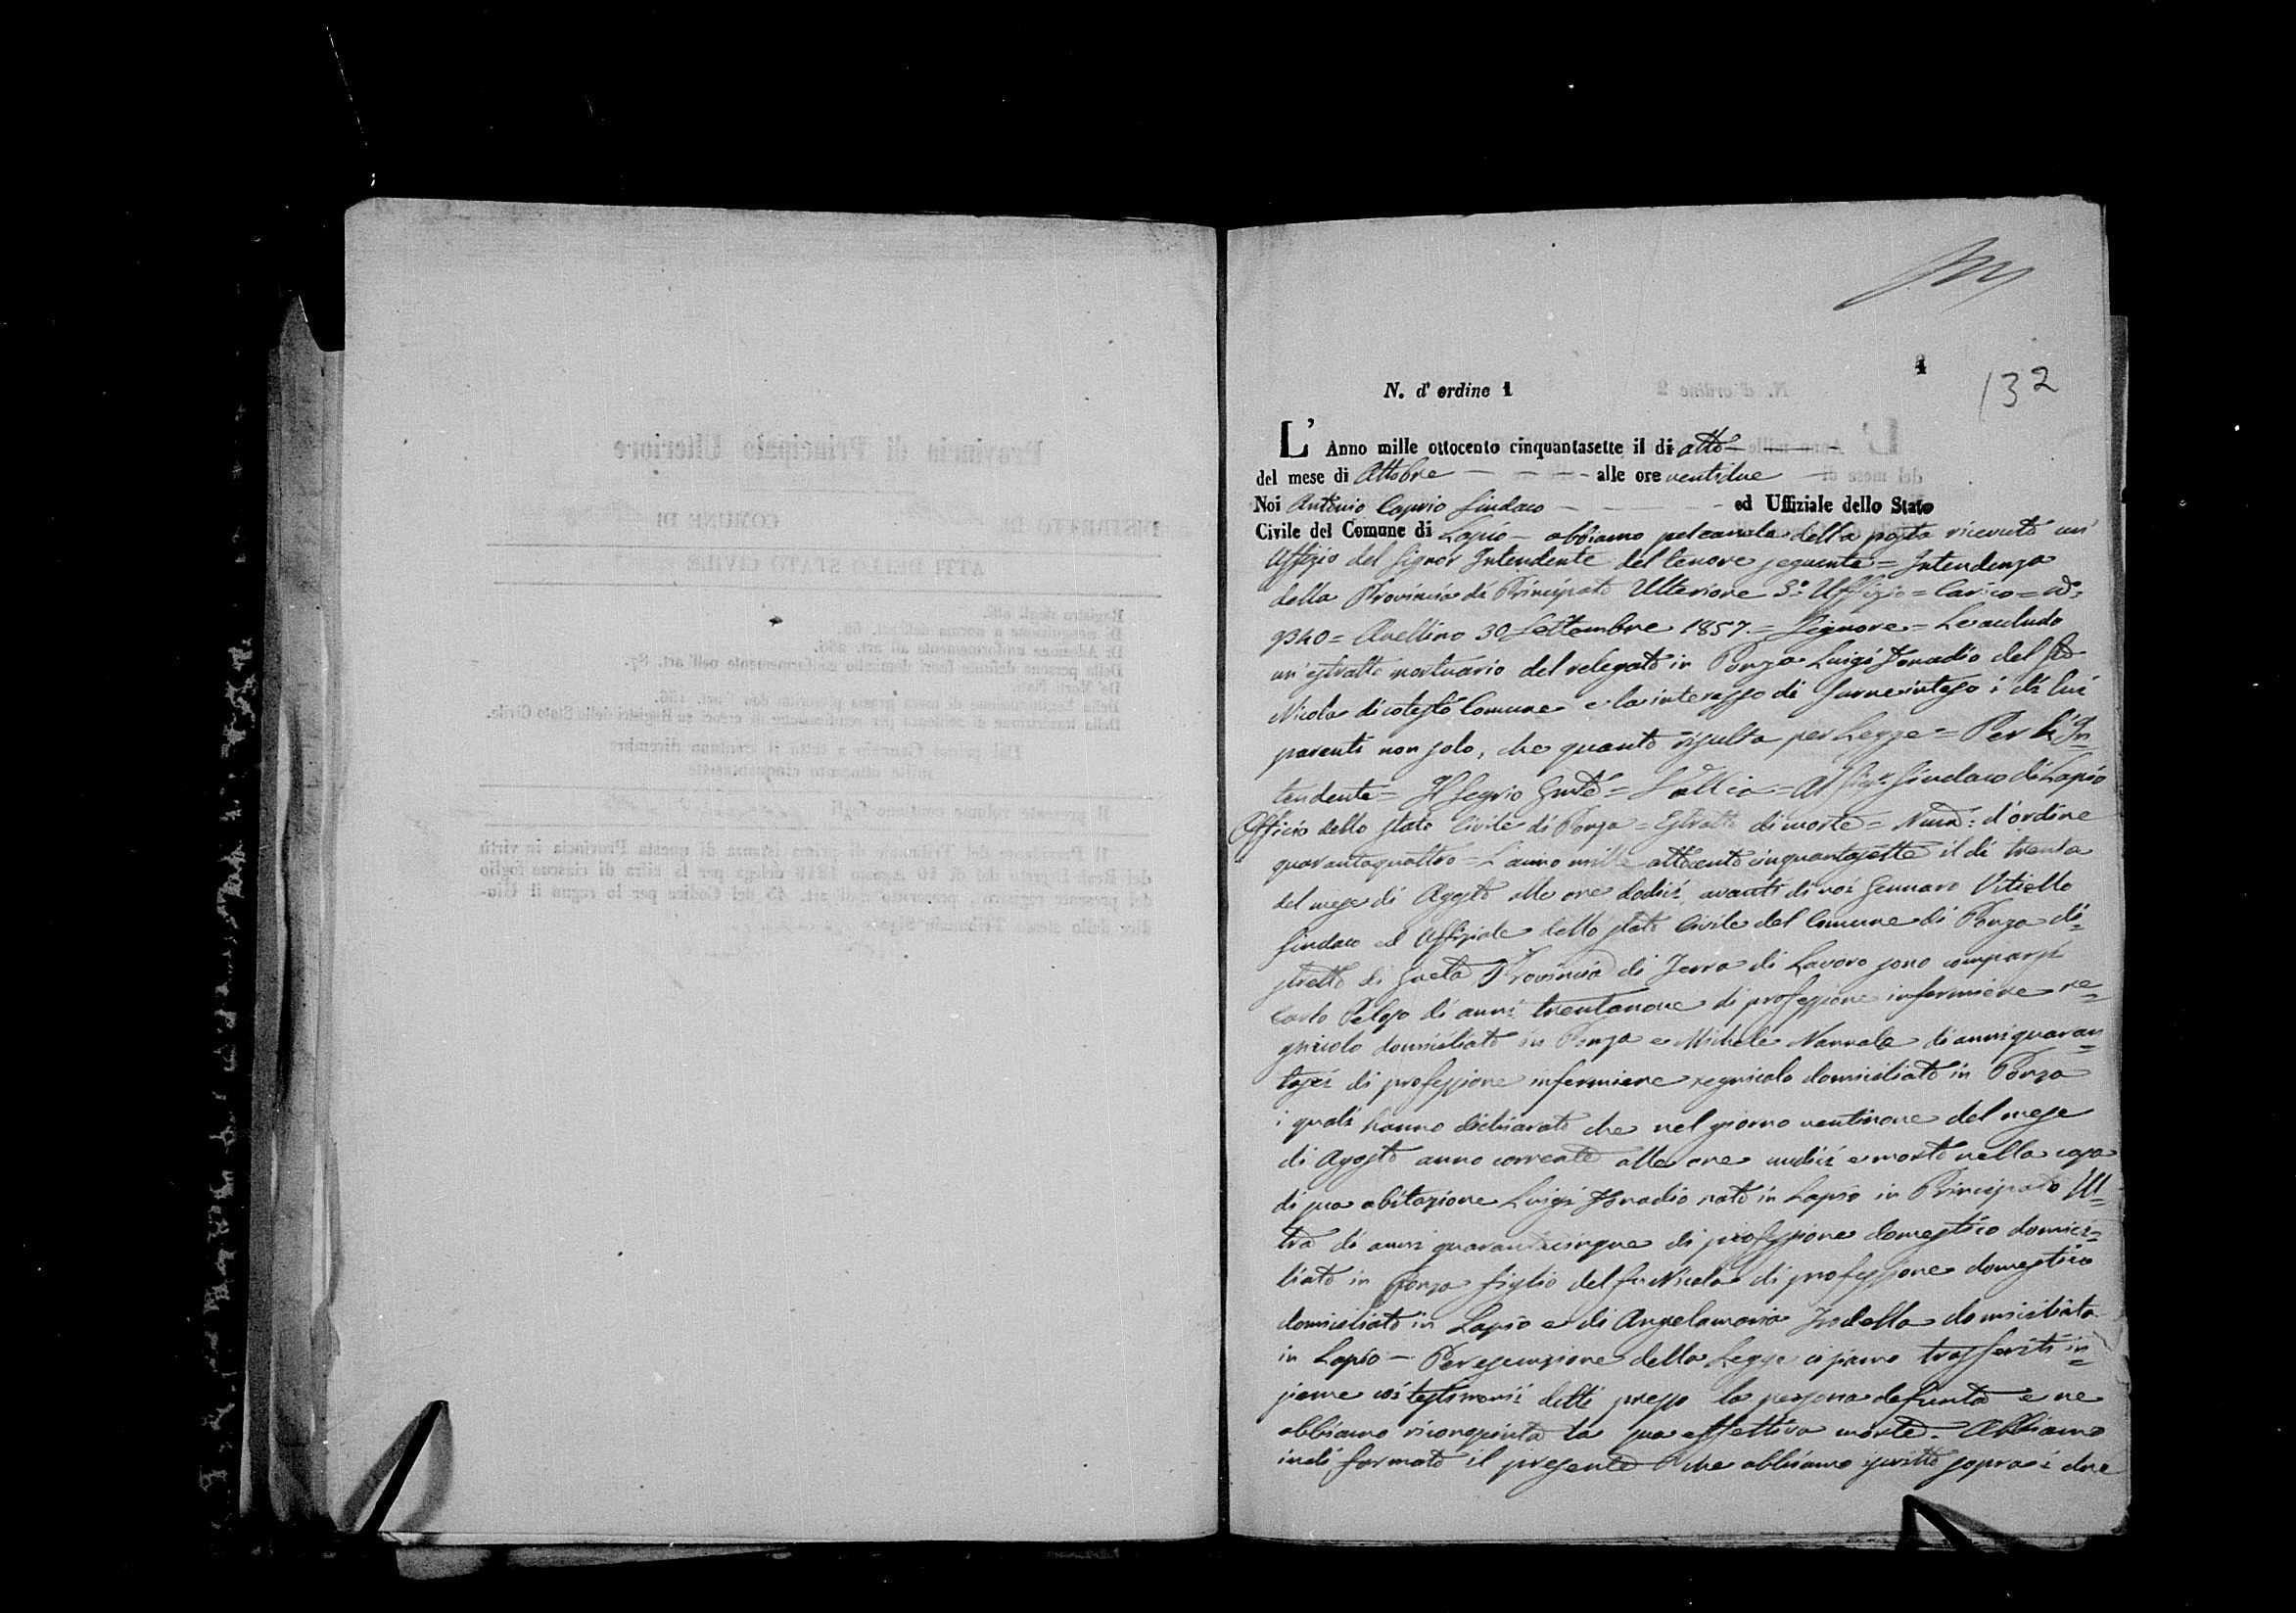 4
132
N. d' ordine 1
L' Anno mille ottocento cinquantasette il di otto
del mese di Ottobre alle ore ventidue
Noi Antonio Caprio Sindaco ed Uffiziale dello Stato
Civile del Comune di Lapio abbiamo pel canale della posta ricevuto un'
Uffizio del Signor Intendente del tenore seguente = Intendenza
della Provincia di Principato Ulteriore 3.o Uffizio = Carico =
9340 = Avellino 30 Settembre 1857. = Signore = Le accludo
un' estratto mortuario del relegato in Ponza Luigi Fonadio del fu
Nicola di cotesto Comune e la interesso di farne inteso i di lui
parenti non solo, che quanto risulta per Legge = Per l' In=
tendente = Il Segrio = Al Sigr. Sindaco di Lapio
Officio dello stato Civile di Ponza = Estratto di morte = Num: d'ordine
quarantaquattro = L'anno mille ottocento cinquantasette il di trenta
del mese di Agosto alle ore dodici avanti di noi Gennaro Vitiello
Sindaco ed Uffiziale dello stato Civile del Comune di Ponza di=
stretto di Gaeta Provincia di Terra di Lavoro sono comparsi
Carlo Peloso di anni trentanove di professione infermiere re=
gnicolo domiciliato in Ponza e Michele di anni quaran=
tasei di professione infermiere regnicolo domiciliato in Ponza
i quali hanno dichiarato che nel giorno ventinove del mese
di Agosto anno corrente alle ore undici e morto nella casa
di sua abitazione Luigi Fonadio nato in Lapio in Principato Ul=
tra di anni quarantacinque di professione domestico domici=
liato in Ponza figlio del fu Nicola di professione domestico
domiciliato in Lapio e di Angelamaria domiciliata
in Lapio – Per esecuzione della Legge ci siamo trasferiti in=
sieme coi testimonii detti presso la persona defunta e ne
abbiamo riconosciuta la sua effettiva morte. Abbiamo
indi formato il presente che abbiamo iscritto sopra i due